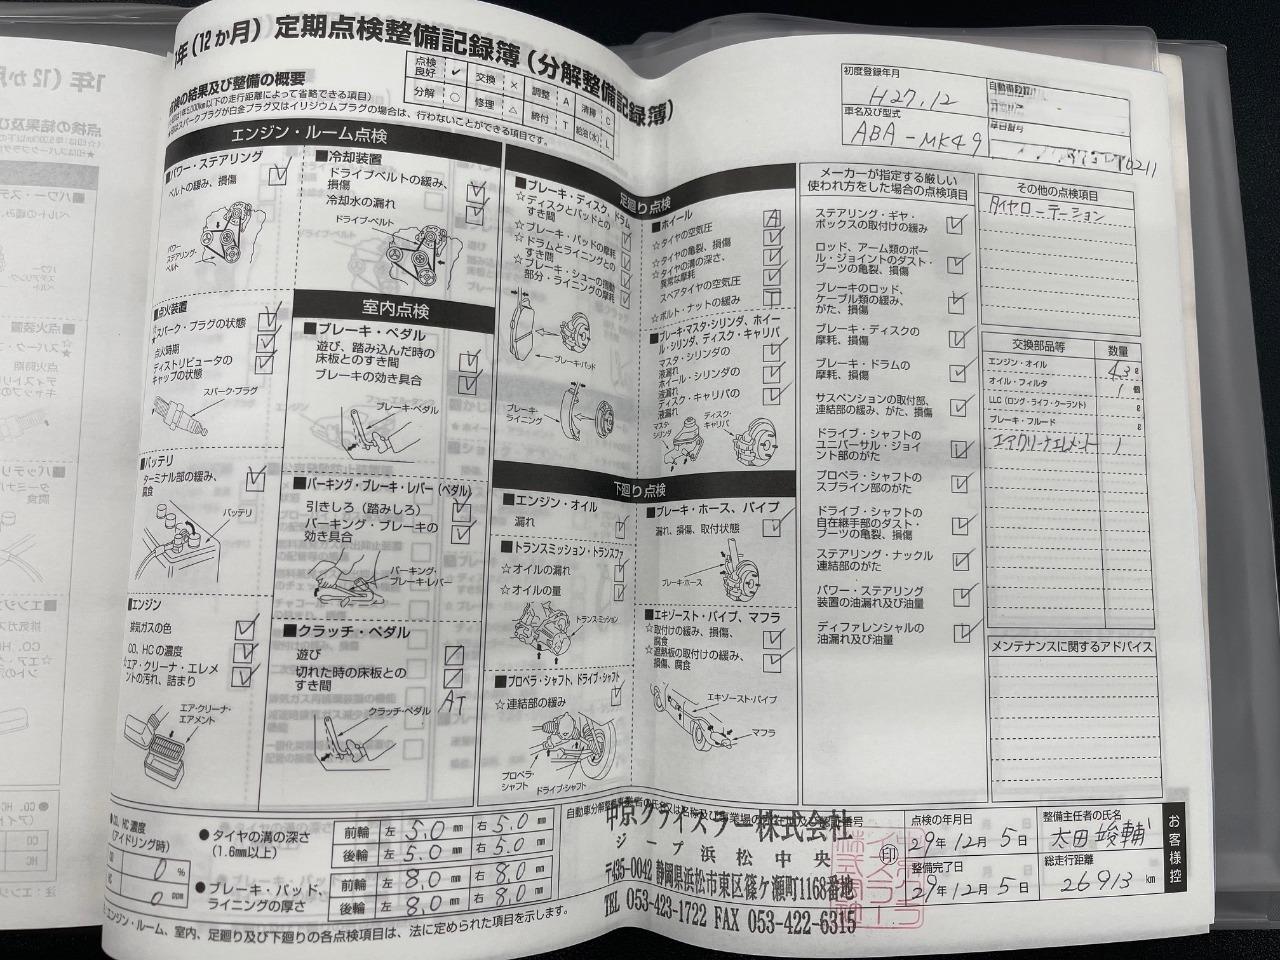 1年(12か月)定期点検整備記録簿(分解整備記録簿)
点検の結果及び整備の概要
点検良好 ✓ 交換 × 調整 A 清掃 C
分解 ○ 修理 △ 締付 T 給油(水) L
初度登録年月
H27.12
車名及び型式
ABA-MK49
エンジン・ルーム点検
■パワー・ステアリング
ベルトの緩み、損傷
パワーステアリング・ベルト
■冷却装置
ドライブベルトの緩み、損傷
冷却水の漏れ
ドライブ・ベルト
■点火装置
☆スパーク・プラグの状態
点火時期
ディストリビュータのキャップの状態
スパーク・プラグ
■バッテリ
ターミナル部の緩み、腐食
バッテリ
■エンジン
排気ガスの色
CO、HCの濃度
☆エア・クリーナ・エレメントの汚れ、詰まり
エア・クリーナ・エアメント
室内点検
■ブレーキ・ペダル
遊び、踏み込んだ時の床板とのすき間
ブレーキの効き具合
ブレーキ・ペダル
■パーキング・ブレーキ・レバー(ペダル)
引きしろ(踏みしろ)
パーキング・ブレーキの効き具合
パーキング・ブレーキ・レバー
■クラッチ・ペダル
遊び
切れた時の床板とのすき間
AT
クラッチ・ペダル
足廻り点検
■ブレーキ・ディスク、ドラム
☆ディスクとパッドとのすき間
☆ブレーキ・パッドの摩耗
☆ドラムとライニングとのすき間
☆ブレーキ・シューの摺動部分・ライニングの摩耗
ブレーキ・パッド
ブレーキ・ライニング
■ホイール
☆タイヤの空気圧
☆タイヤの亀裂、損傷
☆タイヤの溝の深さ、異常な摩耗
スペアタイヤの空気圧
☆ボルト・ナットの緩み
■ブレーキ・マスタ・シリンダ、ホイール・シリンダ、ディスク・キャリパ
マスタ・シリンダの液漏れ
ホイール・シリンダの液漏れ
ディスク・キャリパの液漏れ
マスタ・シリンダ
ディスク・キャリパ
下廻り点検
■エンジン・オイル
漏れ
■トランスミッション・トランスファ
☆オイルの漏れ
☆オイルの量
トランスミッション
■プロペラ・シャフト、ドライブ・シャフト
☆連結部の緩み
プロペラ・シャフト
ドライブ・シャフト
■ブレーキ・ホース、パイプ
漏れ、損傷、取付状態
ブレーキ・ホース
■エキゾースト・パイプ、マフラ
☆取付けの緩み、損傷、腐食
☆遮熱板の取付けの緩み、損傷、腐食
エキゾースト・パイプ
マフラ
メーカーが指定する厳しい使われ方をした場合の点検項目
ステアリング・ギヤ・ボックスの取付けの緩み
ロッド、アーム類のボール・ジョイントのダスト・ブーツの亀裂、損傷
ブレーキのロッド、ケーブル類の緩み、がた、損傷
ブレーキ・ディスクの摩耗、損傷
ブレーキ・ドラムの摩耗、損傷
サスペンションの取付部、連結部の緩み、がた、損傷
ドライブ・シャフトのユニバーサル・ジョイント部のがた
プロペラ・シャフトのスプライン部のがた
ドライブ・シャフトの自在継手部のダスト・ブーツの亀裂、損傷
ステアリング・ナックル連結部のがた
パワー・ステアリング装置の油漏れ及び油量
ディファレンシャルの油漏れ及び油量
その他の点検項目
タイヤローテーション
交換部品等 数量
エンジン・オイル 4.3 ℓ
オイル・フィルタ 1 個
LLC(ロング・ライフ・クーラント) ℓ
ブレーキ・フルード ℓ
エアクリーナエレメント 1
メンテナンスに関するアドバイス
●CO、HC濃度(アイドリング時)
CO 0 %
HC 0 ppm
●タイヤの溝の深さ(1.6mm以上)
前輪 左 5.0 mm 右 5.0 mm
後輪 左 5.0 mm 右 5.0 mm
●ブレーキ・パッド、ライニングの厚さ
前輪 左 8.0 mm 右 8.0 mm
後輪 左 8.0 mm 右 8.0 mm
エンジン・ルーム、室内、足廻り及び下廻りの各点検項目は、法に定められた項目を示します。
中京クライスラー株式会社
ジープ浜松中央
〒435-0042 静岡県浜松市東区篠ケ瀬町1168番地
TEL 053-423-1722 FAX 053-422-6315
㊞
点検の年月日
29年12月5日
整備完了日
29年12月5日
整備主任者の氏名
太田竣輔
総走行距離
26913 km
お客様控